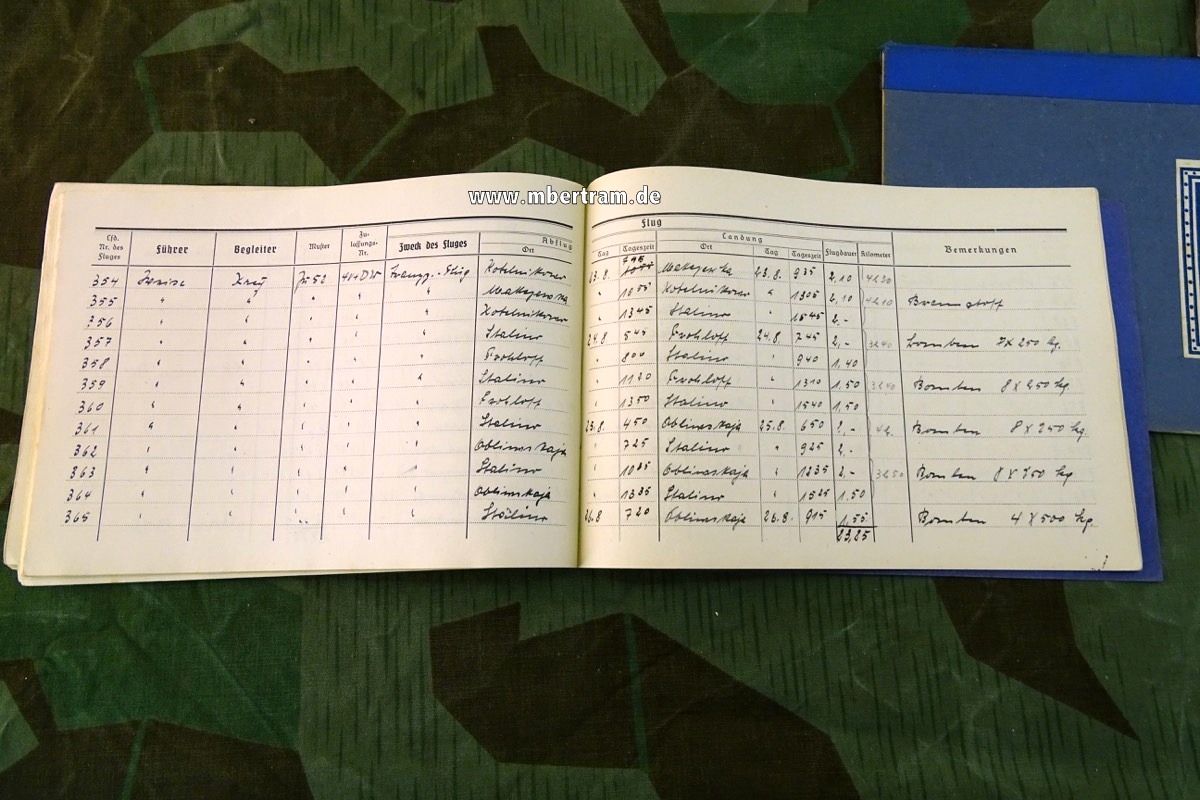 www.mbertram.de
Flug
Lfd. Nr. des Fluges Führer Begleiter Muster Zulassungs-Nr. Zweck des Fluges Abflug Ort Tag Tageszeit Landung Ort Tag Tageszeit Flugdauer Kilometer Bemerkungen
354 Ju 52 Kotelnikowo 23.8. Makejewka 23.8. 935 2,10
355 " " " " " Makejewka " 1055 Kotelnikowo " 1305 2,10 Brennstoff
356 " " " " " Kotelnikowo " 1345 Stalino " 1545 2,-
357 " " " " " Stalino 24.8. 545 Froloff 24.8. 745 2,- Bomben 7 x 250 kg.
358 " " " " " Froloff " 800 Stalino " 940 1,40
359 " " " " " Stalino " 1120 Froloff " 1310 1,50 Bomben 8 x 250 kg
360 " " " " " Froloff " 1350 Stalino " 1540 1,50
361 " " " " " Stalino 25.8. 450 Obliwskaja 25.8. 650 2,- Bomben 8 x 250 kg.
362 " " " " " Obliwskaja " 725 Stalino " 925 2,-
363 " " " " " Stalino " 1035 Obliwskaja " 1235 2,- Bomben 8 x 250 kg
364 " " " " " Obliwskaja " 1335 Stalino " 1525 1,50
365 " " " " " Stalino 26.8 720 Obliwskaja 26.8. 915 1,55 Bomben 4 x 500 kg
23,25